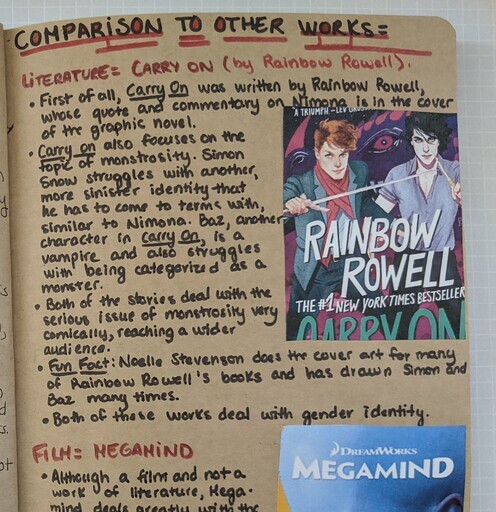 COMPARISON TO OTHER WORKS=
LITERATURE= CARRY ON (by Rainbow Rowell).
• First of all, Carry On was written by Rainbow Rowell,
whose quote and commentary on Nimona is in the cover
of the graphic novel.
• Carry on also focuses on the
topic of monstrosity. Simon
Snow struggles with another,
more sinister identity that
he has to come to terms with,
similar to Nimona. Baz, another
character in Carry On, is a
vampire and also struggles
with being categorized as a
monster.
• Both of the stories deal with the
serious issue of monstrosity very
comically, reaching a wider
audience.
• Fun Fact: Noelle Stevenson does the cover art for many
of Rainbow Rowell's books and has drawn Simon and
Baz many times.
• Both of these works deal with gender identity.
"A TRIUMPH"—LEV GROSSM
RAINBOW
ROWELL
THE #1 NEW YORK TIMES BESTSELLER
CARRY ON
FILM= MEGAMIND
• Although a film and not a
work of literature, Mega-
mind deals greatly with the
DREAMWORKS
MEGAMIND